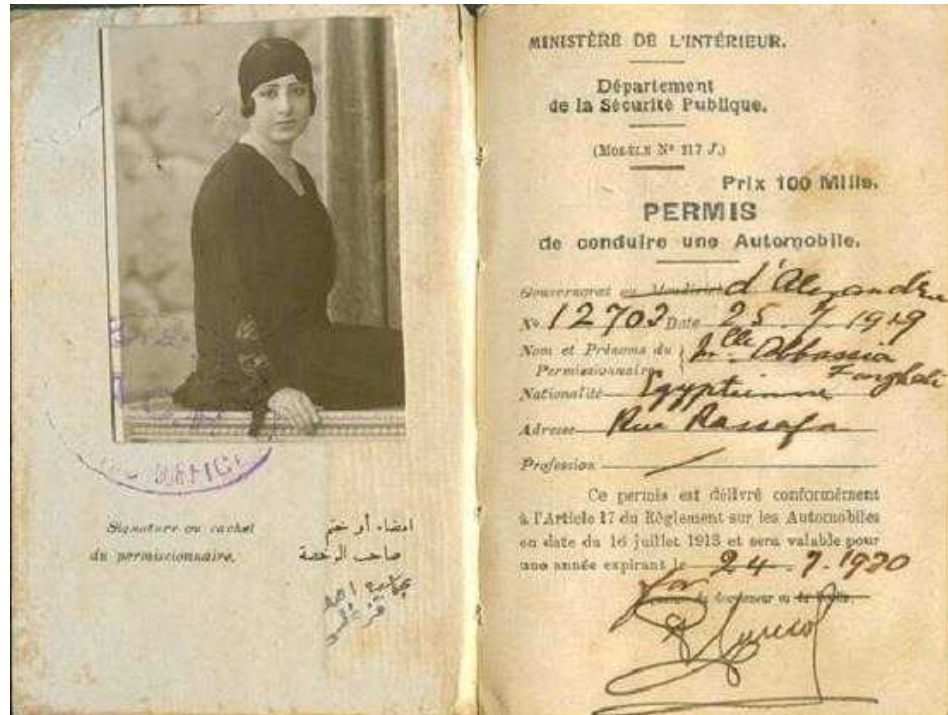 Signature ou cachet
du permissionnaire.
امضاء أو ختم
صاحب الرخصة
احمد
فرغلى
MINISTÈRE DE L'INTÉRIEUR.
Département
de la Sécurité Publique.
(MODÈLE Nº 117 J.)
Prix 100 Mills.
PERMIS
de conduire une Automobile.
Gouvernorat ou Moudirieh d'Alexandrie
No. 12703 Date 25.7.1929
Nom et Prénoms du Permissionnaire Mlle Abbassia Farghali
Nationalité Egyptienne
Adresse Rue Rassafa
Profession
Ce permis est délivré conformément
à l'Article 17 du Règlement sur les Automobiles
en date du 16 juillet 1913 et sera valable pour
une année expirant le 24.7.1930
for
du Gouverneur ou